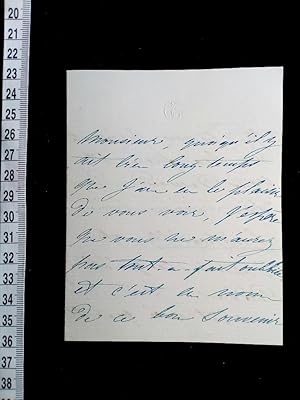 20
21
22
23
24
25
26
27
28
29
30
31
32
33
34
35
36
37
38
Monsieur, quoiqu'il y
ait bien long-temps
que j'aie eu le plaisir
de vous voir, j'espère
que vous ne m'aurez
pas tout-à-fait oubliée
et c'est au nom
de ce bon souvenir